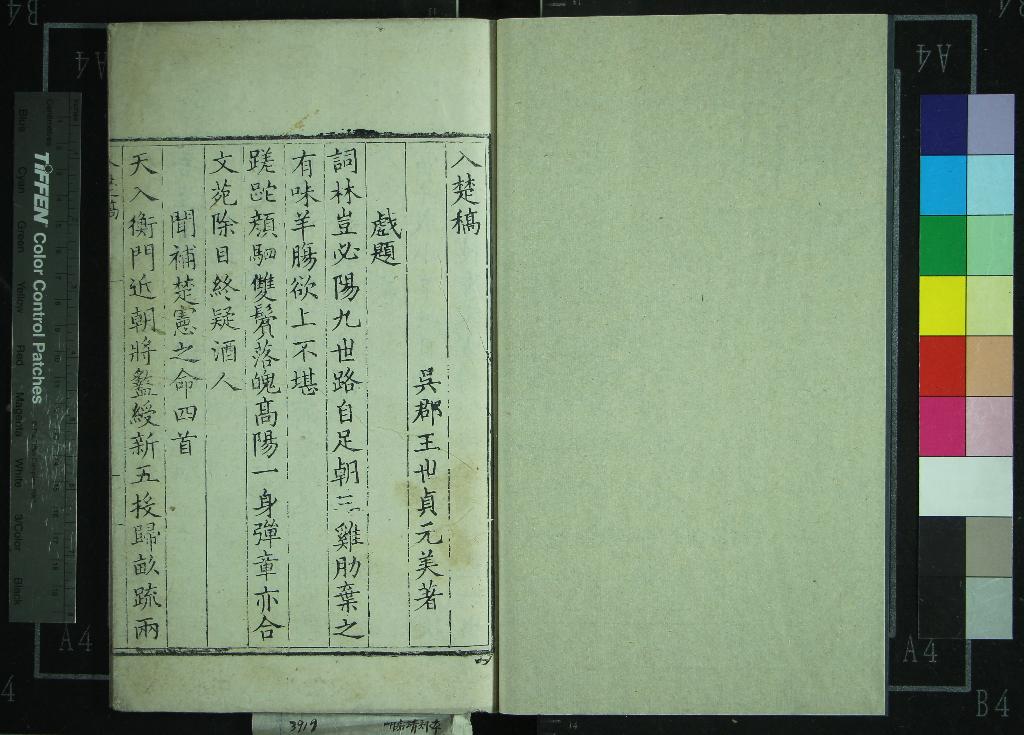 入楚稿
吳郡王世貞元美著
戲題
詞林豈必陽九世路自足朝三雞肋棄之
有味羊腸欲上不堪
蹉跎顏駟雙鬢落魄高陽一身彈章亦合
文苑除目終疑酒人
聞補楚憲之命四首
天入衡門近朝將盭綬新五投歸畝疏兩
TIFFEN Color Control Patches
Blue Cyan Green Yellow Red Magenta White 3/Color Black
A4
A4
A4
A4
B4
B4
3919